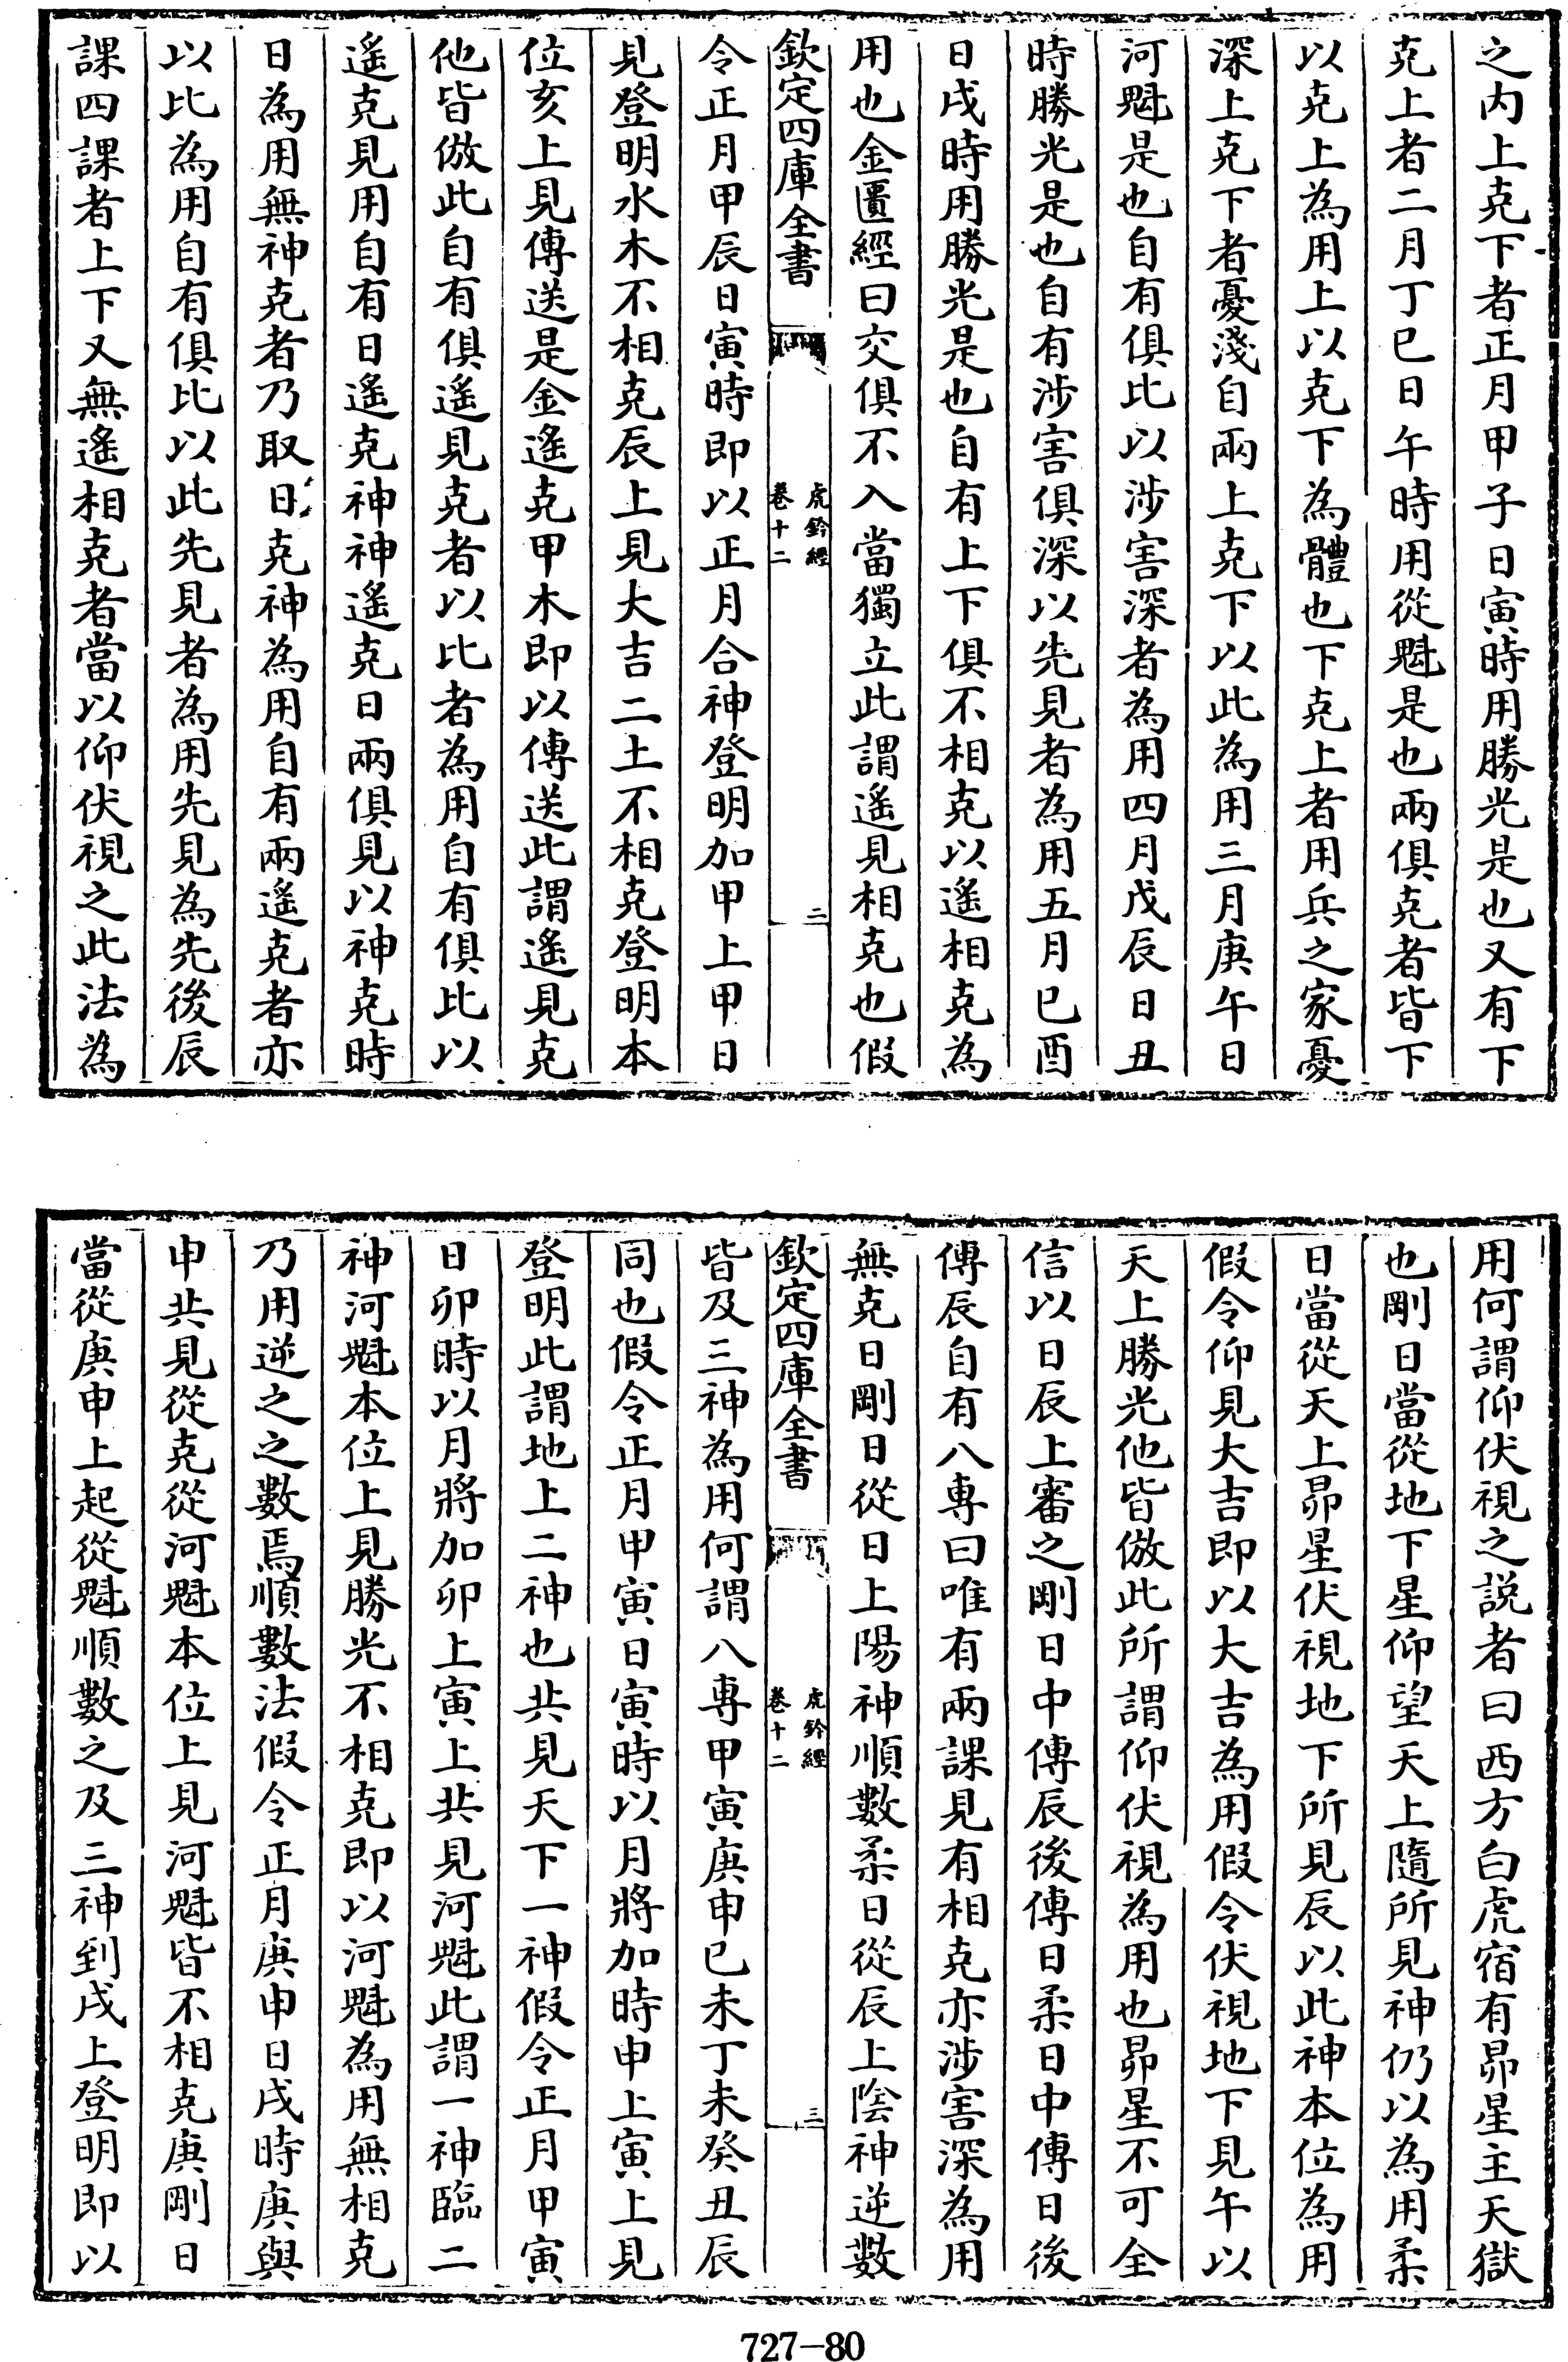 之内上克下者正月甲子日寅時用勝光是也又有下
克上者二月丁巳日午時用從魁是也兩俱克者皆下
以克上為用上以克下為體也下克上者用兵之家憂
深上克下者憂淺自兩上克下以此為用三月庚午日
河魁是也自有俱比以涉害深者為用四月戊辰日丑
時勝光是也自有涉害俱深以先見者為用五月巳酉
日戌時用勝光是也自有上下俱不相克以遥相克為
用也金匱經曰交俱不入當獨立此謂遥見相克也假
欽定四庫全書
虎鈐經
卷十二
二
令正月甲辰日寅時即以正月合神登明加甲上甲日
見登明水木不相克辰上見大吉二土不相克登明本
位亥上見傳送是金遥克甲木即以傳送此謂遥見克
他皆倣此自有俱遥見克者以比者為用自有俱比以
遥克見用自有日遥克神神遥克日兩俱見以神克時
日為用無神克者乃取日克神為用自有兩遥克者亦
以比為用自有俱比以此先見者為用先見為先後辰
課四課者上下又無遥相克者當以仰伏視之此法為
用何謂仰伏視之説者曰西方白虎宿有昴星主天獄
也剛日當從地下星仰望天上隨所見神仍以為用柔
日當從天上昴星伏視地下所見辰以此神本位為用
假令仰見大吉即以大吉為用假令伏視地下見午以
天上勝光他皆倣此所謂仰伏視為用也昴星不可全
信以日辰上審之剛日中傳辰後傳日柔日中傳日後
傳辰自有八專曰唯有兩課見有相克亦涉害深為用
無克日剛日從日上陽神順數柔日從辰上陰神逆數
欽定四庫全書
虎鈐經
卷十二
三
皆及三神為用何謂八專甲寅庚申巳未丁未癸丑辰
同也假令正月甲寅日寅時以月將加時申上寅上見
登明此謂地上二神也共見天下一神假令正月甲寅
日卯時以月將加卯上寅上共見河魁此謂一神臨二
神河魁本位上見勝光不相克即以河魁為用無相克
乃用逆之之數焉順數法假令正月庚申日戌時庚與
申共見從克從河魁本位上見河魁皆不相克庚剛日
當從庚申上起從魁順數之及三神到戌上登明即以
727-80